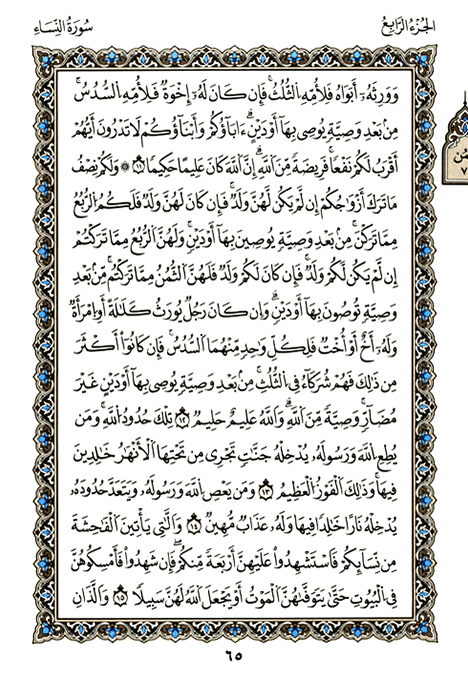 الجزء الرابع
سورة النساء
وَوَرِثَهُۥٓ أَبَوَاهُ فَلِأُمِّهِ الثُّلُثُ ۚ فَإِن كَانَ لَهُۥٓ إِخْوَةٌ فَلِأُمِّهِ السُّدُسُ ۚ
مِنۢ بَعْدِ وَصِيَّةٍ يُوصِي بِهَآ أَوْ دَيْنٍ ۗ ءَابَآؤُكُمْ وَأَبْنَآؤُكُمْ لَا تَدْرُونَ أَيُّهُمْ
أَقْرَبُ لَكُمْ نَفْعًا ۚ فَرِيضَةً مِّنَ اللَّهِ ۗ إِنَّ اللَّهَ كَانَ عَلِيمًا حَكِيمًا ١١ ۞ وَلَكُمْ نِصْفُ
مَا تَرَكَ أَزْوَٰجُكُمْ إِن لَّمْ يَكُن لَّهُنَّ وَلَدٌ ۚ فَإِن كَانَ لَهُنَّ وَلَدٌ فَلَكُمُ الرُّبُعُ
مِمَّا تَرَكْنَ ۚ مِنۢ بَعْدِ وَصِيَّةٍ يُوصِينَ بِهَآ أَوْ دَيْنٍ ۚ وَلَهُنَّ الرُّبُعُ مِمَّا تَرَكْتُمْ
إِن لَّمْ يَكُن لَّكُمْ وَلَدٌ ۚ فَإِن كَانَ لَكُمْ وَلَدٌ فَلَهُنَّ الثُّمُنُ مِمَّا تَرَكْتُم ۚ مِّنۢ بَعْدِ
وَصِيَّةٍ تُوصُونَ بِهَآ أَوْ دَيْنٍ ۗ وَإِن كَانَ رَجُلٌ يُورَثُ كَلَٰلَةً أَوِ امْرَأَةٌ
وَلَهُۥٓ أَخٌ أَوْ أُخْتٌ فَلِكُلِّ وَٰحِدٍ مِّنْهُمَا السُّدُسُ ۚ فَإِن كَانُوٓا۟ أَكْثَرَ
مِن ذَٰلِكَ فَهُمْ شُرَكَآءُ فِي الثُّلُثِ ۚ مِنۢ بَعْدِ وَصِيَّةٍ يُوصَىٰ بِهَآ أَوْ دَيْنٍ غَيْرَ
مُضَآرٍّ ۚ وَصِيَّةً مِّنَ اللَّهِ ۗ وَاللَّهُ عَلِيمٌ حَلِيمٌ ١٢ تِلْكَ حُدُودُ اللَّهِ ۚ وَمَن
يُطِعِ اللَّهَ وَرَسُولَهُۥ يُدْخِلْهُ جَنَّٰتٍ تَجْرِي مِن تَحْتِهَا الْأَنْهَٰرُ خَٰلِدِينَ
فِيهَا ۚ وَذَٰلِكَ الْفَوْزُ الْعَظِيمُ ١٣ وَمَن يَعْصِ اللَّهَ وَرَسُولَهُۥ وَيَتَعَدَّ حُدُودَهُۥ
يُدْخِلْهُ نَارًا خَٰلِدًا فِيهَا وَلَهُۥ عَذَابٌ مُّهِينٌ ١٤ وَالَّٰتِي يَأْتِينَ الْفَٰحِشَةَ
مِن نِّسَآئِكُمْ فَاسْتَشْهِدُوا۟ عَلَيْهِنَّ أَرْبَعَةً مِّنكُمْ ۖ فَإِن شَهِدُوا۟ فَأَمْسِكُوهُنَّ
فِي الْبُيُوتِ حَتَّىٰ يَتَوَفَّىٰهُنَّ الْمَوْتُ أَوْ يَجْعَلَ اللَّهُ لَهُنَّ سَبِيلًا ١٥ وَالَّذَانِ
٦٥